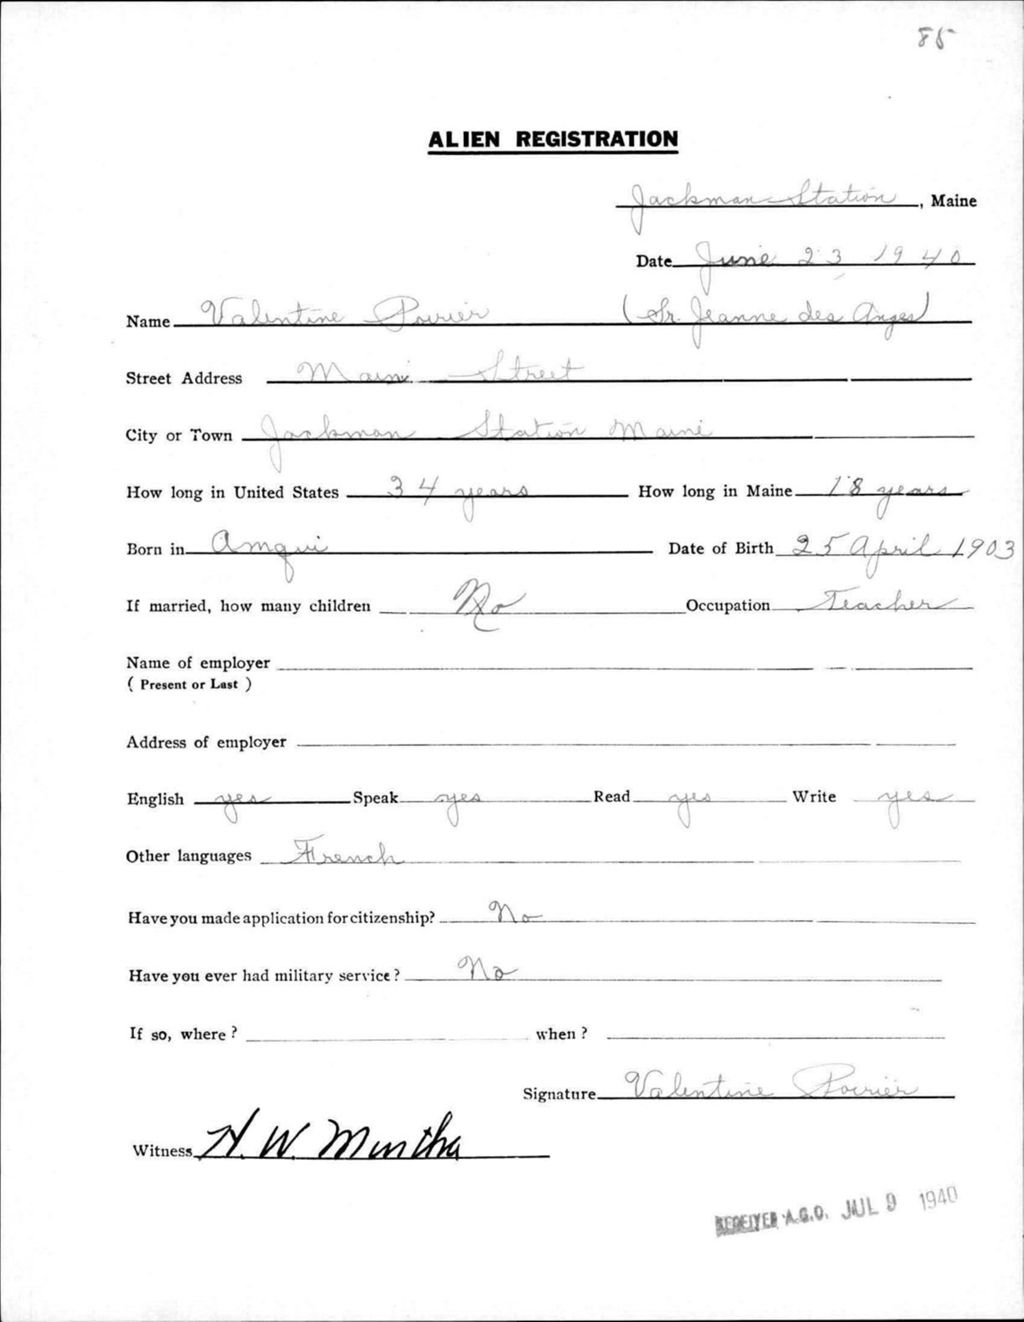 85
ALIEN REGISTRATION
Jackman Station, Maine
Date June 23 1940
Name Valentine Poirier (Sr. Jeanne des Anges)
Street Address Main Street
City or Town Jackman Station Maine
How long in United States 34 years How long in Maine 18 years
Born in Amqui Date of Birth 25 April 1903
If married, how many children No Occupation Teacher
Name of employer
( Present or Last )
Address of employer
English yes Speak yes Read yes Write yes
Other languages French
Have you made application for citizenship? No
Have you ever had military service? No
If so, where? when?
Signature Valentine Poirier
Witness H. W. Murtha
RECEIVED A.G.O. JUL 9 1940